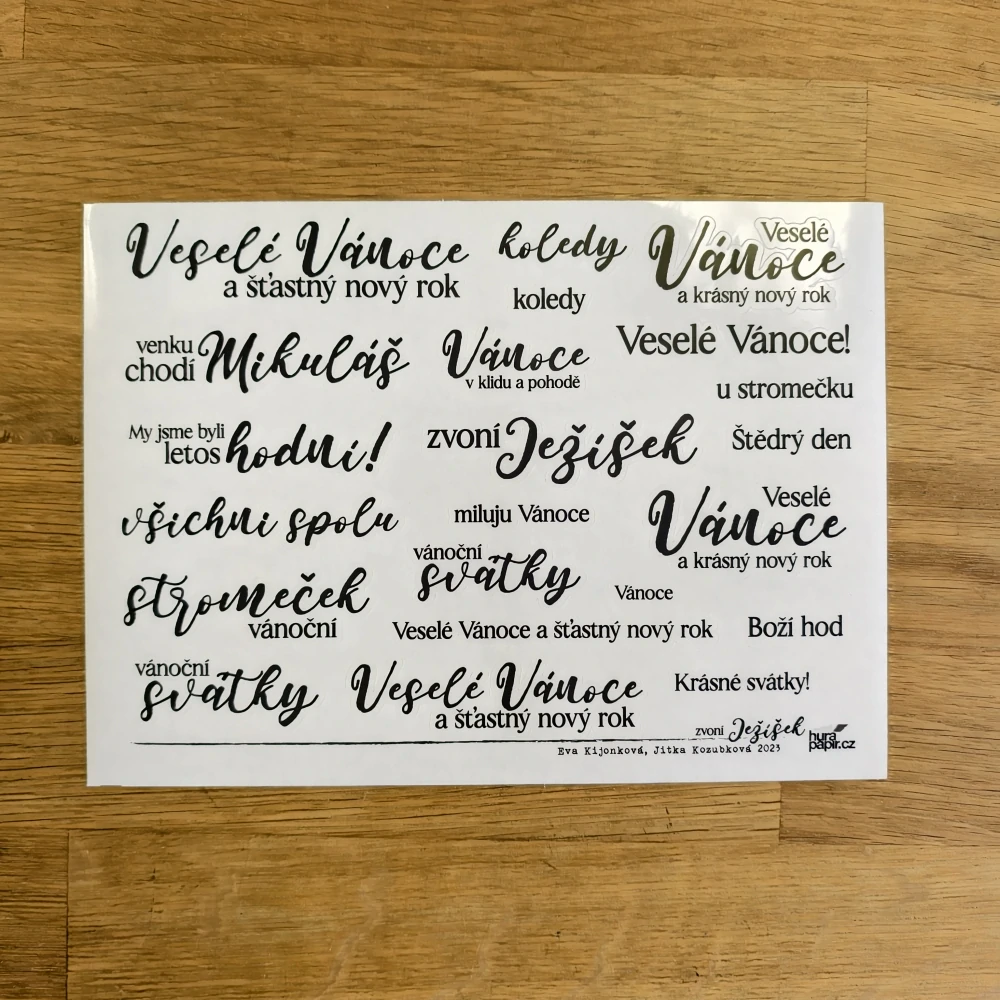 Veselé Vánoce
a šťastný nový rok
koledy
koledy
Veselé
Vánoce
a krásný nový rok
venku
chodí Mikuláš
Vánoce
v klidu a pohodě
Veselé Vánoce!
u stromečku
My jsme byli
letos hodní!
zvoní Ježíšek
Štědrý den
všichni spolu
miluju Vánoce
Veselé
Vánoce
a krásný nový rok
vánoční
svátky
stromeček
vánoční
Vánoce
Veselé Vánoce a šťastný nový rok
Boží hod
vánoční
svátky
Veselé Vánoce
a šťastný nový rok
Krásné svátky!
zvoní Ježíšek
Eva Kijonková, Jitka Kozubková 2023
hura
papir.cz